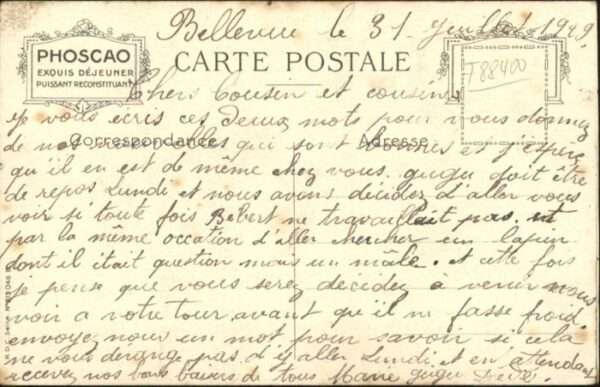 Bellevue le 31 Juillet 1929
PHOSCAO
EXQUIS DÉJEUNER
PUISSANT RECONSTITUANT
CARTE POSTALE
T88400
Chers Cousin et cousine
je vous ecris ces deux mots pour vous donner
Correspondance
Adresse
de nos nouvelles qui sont bonnes et j'espère
qu'il en est de même chez vous gugu doit être
de repos Lundi et nous avons décidez d'aller vous
voir si toute fois Bebert ne travaillait pas. et
par la même occation d'aller chercher un lapin
dont il était question mais un mâle. et cette fois
je pense que vous serez decidez a venir nous
voir a votre tour avant qu'il ne fasse froid
envoyez nous un mot pour savoir si cela
ne vous derange pas d'y aller Lundi et en attendant
recevez nos bons baisers de tous Marie gugu